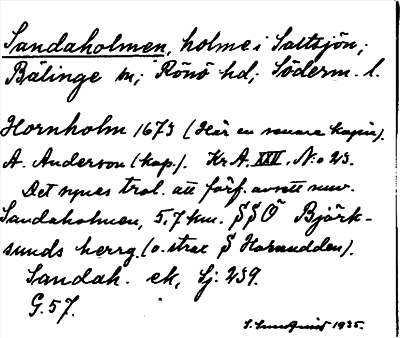 Sandaholmen, holme i Saltsjön,
Bälinge sn; Rönö hd; Söderm. l.
Hornholm 1673 (Här en senare kopia).
A. Anderson (kop.). Kr A. XXV. N:o 23.
Det synes trol. att förf. avsett nuv.
Sandaholmen, 5,7 km. S S Ö Björk-
sunds herrg. (o. strax S Hornudden).
Sandah. ek, Sj: 239.
G. 57.
1935.